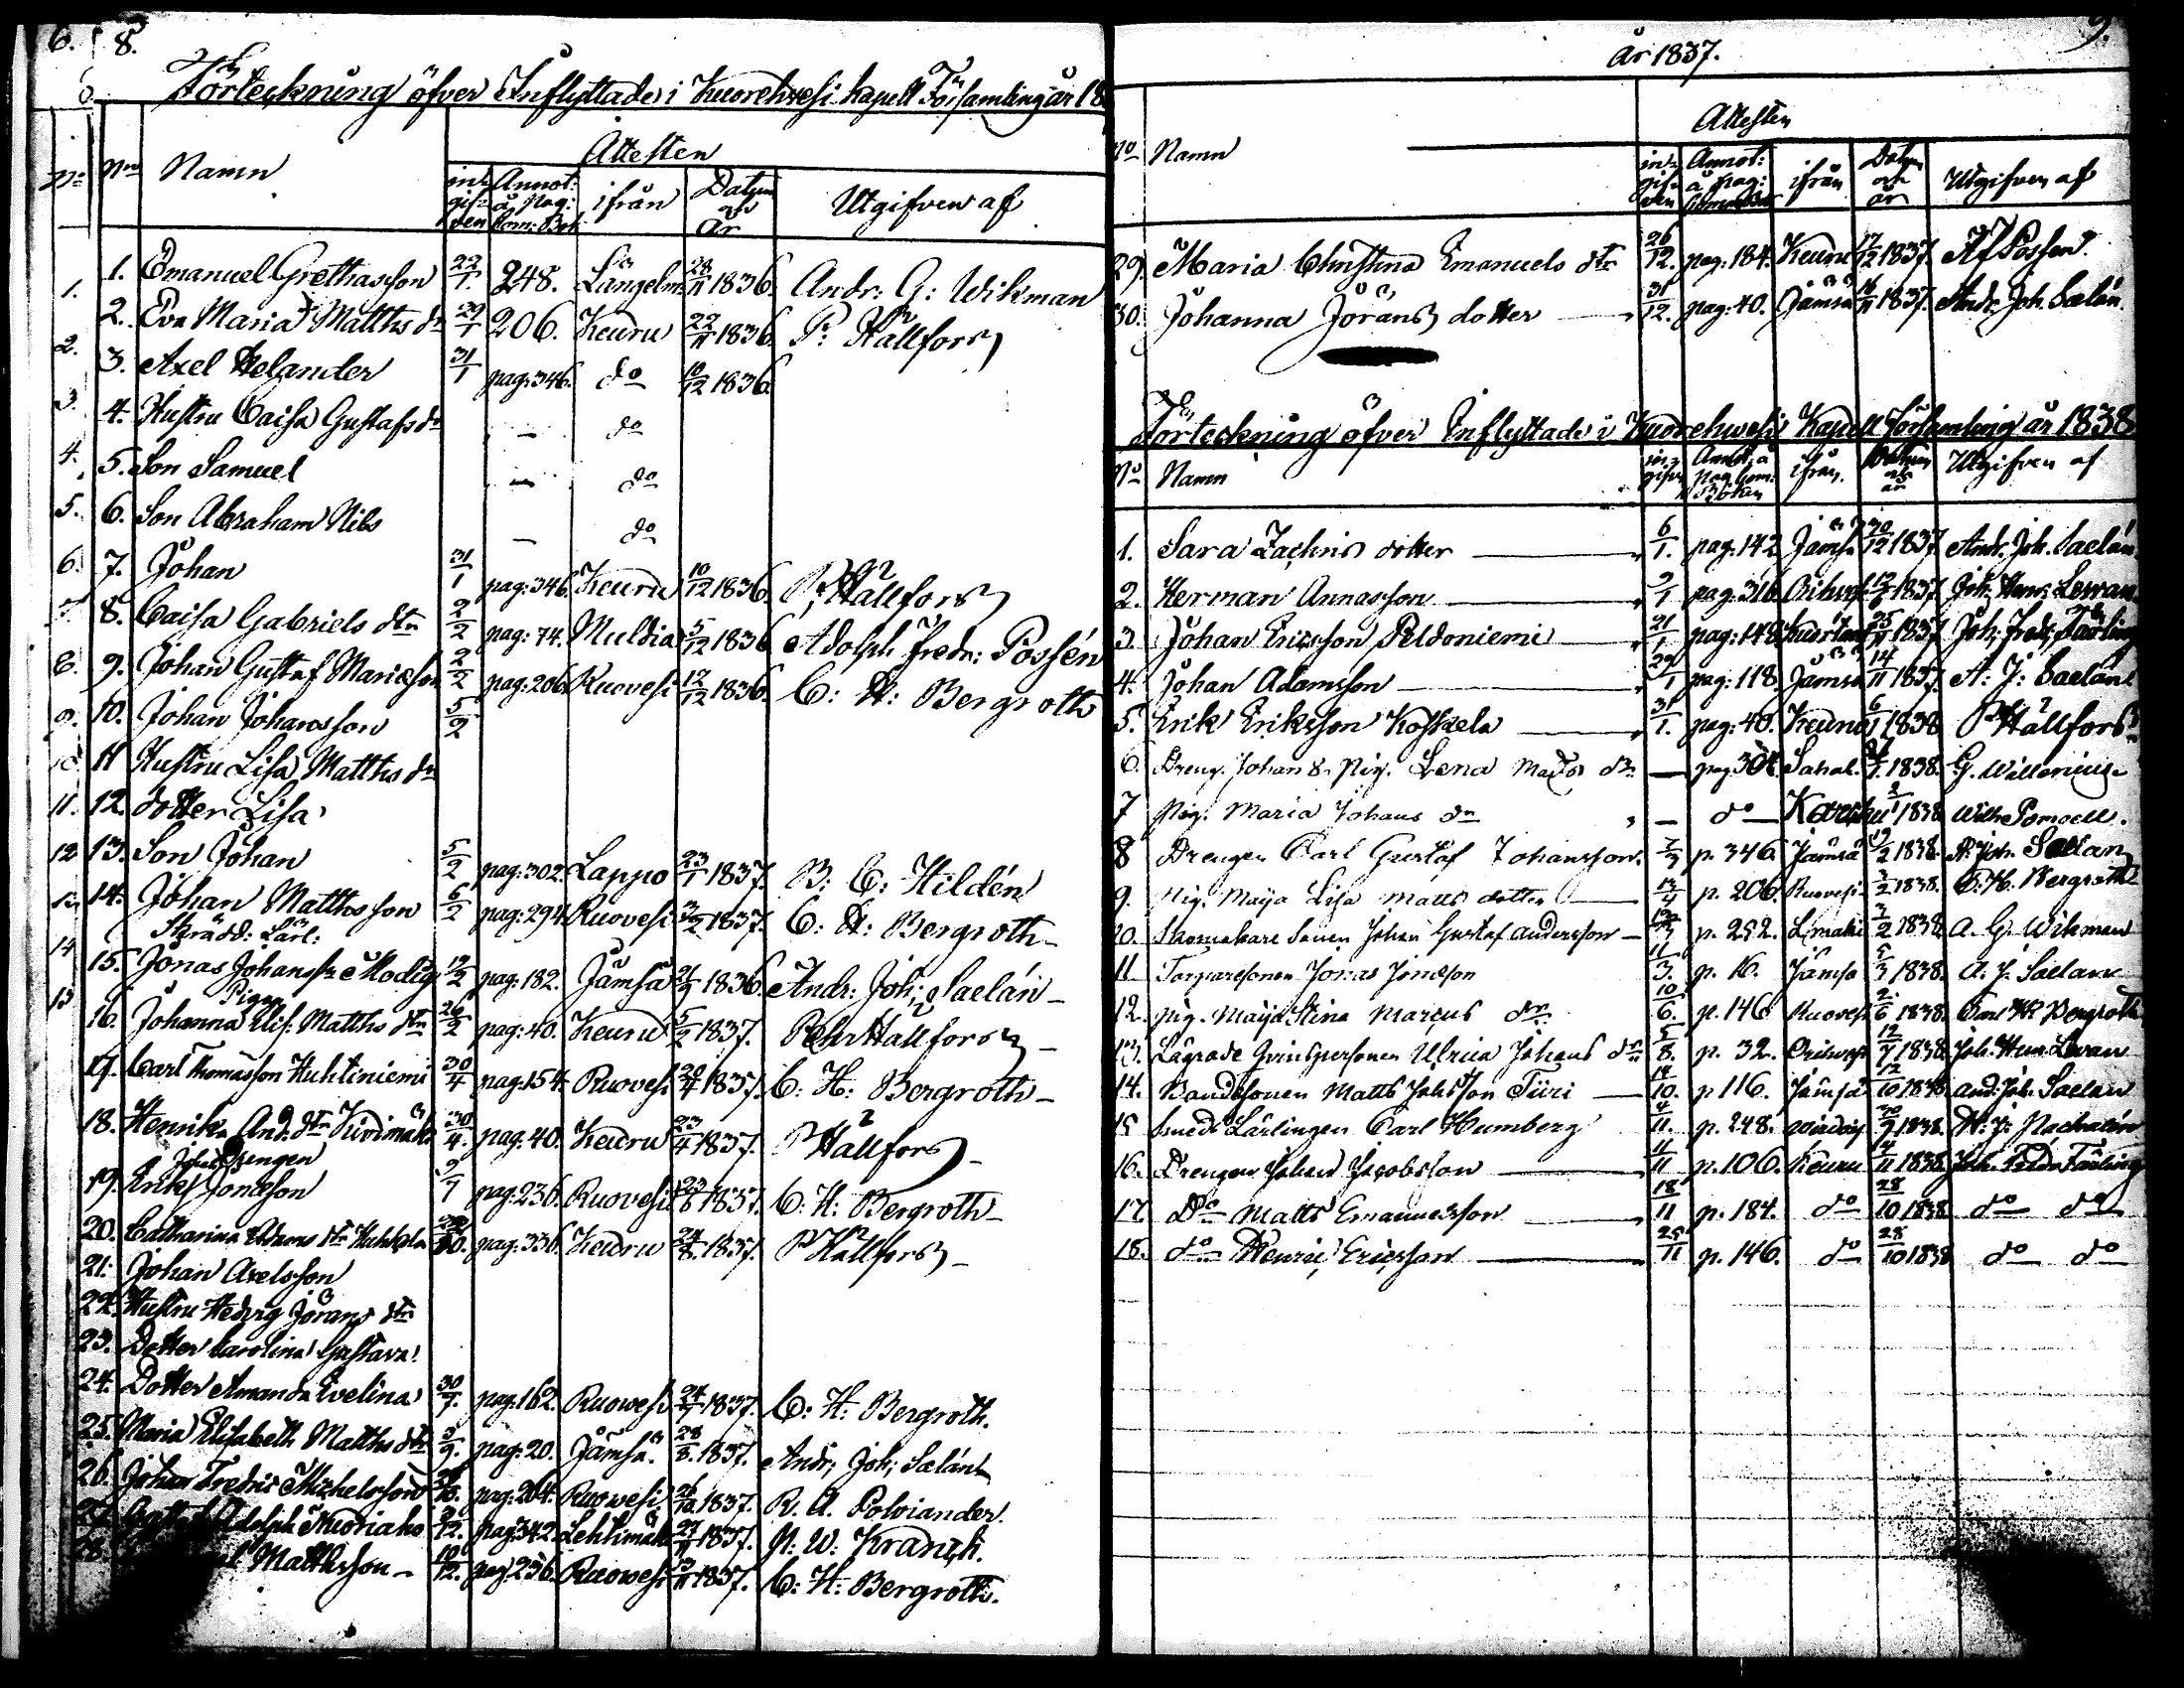 6. 8.
Förteckning öfver Inflyttade i Kuorehwesi kapell Församling år 18
Attesten
No Nro Namn ingifven Annot: å pag: Kom: Bok ifrån Datum och År Utgifven af
1. 1. Emanuel Grethasson 22/1. 248. Längelm. 28/11 1836. Andr: G: Wikman
2. 2. Eva Maria Matths dr 29/1 206. Keuru 29/11 1836. P: Hällfors
3. 3. Axel Helander 31/1 pag: 346. do 10/12 1836.
4. 4. Hustru Caisa Gustafs dr — do
5. 5. Son Samuel — do
6. Son Abraham Nils — do
6. 7. Johan 31/1 pag: 346. Keuru 10/12 1836. P: Hällfors
7. 8. Caisa Gabriels dtr 2/2 pag: 74. Muldia 5/12 1836 Adolph Fredr: Possén
8. 9. Johan Gustaf Mariæson 2/2 pag: 206. Ruovesi 12/12 1836. C: H: Bergroth
9. 10. Johan Johansson 5/2
10. 11 Hustru Lisa Matths dr
11. 12. dotter Lisa
12 13. Son Johan 5/2 pag: 302. Lappo 23/1 1837. B: C: Hildén
14. Johan Matthsson 6/2 pag: 294. Ruovesi 3/2 1837. C: H: Bergroth
14 Skrädd: Lärl:
15. Jonas Johansson Modig 12/2 pag: 182. Jämsä 1836. Andr: Joh: Saelán
15 Pigan
16. Johanna Ulis: Matths dtr 26/2 pag: 40. Keuru 5/2 1837. Pehr Hällfors
17. Carl Thomasson Huhtiniemi 30/4 pag: 154. Ruovesi 20/4 1837. C: H: Bergroth
18. Henrika And: dtr Kivimäki 30/4. pag: 40. Keuru 23/4 1837. P Hällfors
Drengen
19. Erik Jonæson 9/7 pag: 236. Ruovesi 1837. C: H: Bergroth
20. Catharina Adams dtr pag: 336. Keuru 24/8. 1837. P Hällfors
21. Johan Axelsson
22. Hustru Hedvig Jörans dtr
23. Dotter Carolina Gustava
24. Dotter Amanda Evelina 30/7. pag: 162. Ruowesi 24/7 1837. C: H: Bergroth.
25. Maria Elisabeth Matths dtr 3/9. pag: 20. Jämsä. 28/8. 1837. Andr; Joh; Sælán
26. Johan Fredric Michelsson pag: 204. Ruowesi 26/10 1837. R. A. Polviander.
27. Adolph pag: 342 Lehtimäki 27/11 1837. N. W. Krank.
28. Matthsson 10/12. pag: 236. Ruowesi 1837. C: H: Bergroth.
9.
år 1837.
Attesten
No Namn ingifven Annot: å pag: ifrån Datum och år Utgifven af
29. Maria Christina Emanuels dtr 26/12. pag: 184. Keuru 17/12 1837. Af Possén.
30. Johanna Jörans dotter 31/12. pag: 40. Jämsä 1837. Andr. Joh. Sælán.
Förteckning öfver Inflyttade i Kuorehwesi Kapell Församling år 1838
No Namn ingifv Annot: å pag Kom: Boken ifrån. Datum och år Utgifven af
1. Sara Zachris dotter 6/1. pag: 142 Jämsä 30/12 1837 Andr. Joh. Saelán
2. Herman Annasson 9/1 pag: 316. Orihves 1837 Joh: Henr: Lewan
3. Johan Ericsson Peldoniemi 21/1 pag: 148 Kuortan 25/11 1837 Joh: Fredr: Färling
4. Johan Adamsson 29/1 pag: 118. Jämsä 14/11 1837. A: J: Saelán
5. Erik Eriksson Koskela 31/1. pag: 40. Keuru 6/1 1838 P Hällfors
6. Dreng. Johan & Pig. Lena Matts dr. — pag 304. Sahal. 1838. G. Willenius
7 Pig. Maria Johans dr — do 1838 Wilh Pomoell.
8 Drengen Carl Gustaf Johansson. p. 346. Jämsä 19/2 1838. A: Joh. Saelan
9. Pig. Maija Lisa Matts dotter 13/4 p. 206. Ruovesi 3/2 1838. C. H. Bergroth
10. Skomakare Sonen Johan Gustaf Andersson p. 292. 3/2 1838 A. G. Wikman
11 Torparesonen Jonas Jonæson 11/3. p. 16. Jämsä 5/3 1838. A. J. Saelan
12. Pig. Maija Stina Marcus dr. 10/6. p. 146 Ruoves 2/6 1838. Carl H Bergroth
13. Lägrade Qvinspersonen Ulrica Johans dr 5/8. p. 32. Orihves 12/7 1838. Joh. Henr. Lewan
14. Bondesonen Matts Johsson Türi 14/10. p. 116. Jämsä 12/10 1838 And. Joh. Saelan
15 Smeds Lärlingen Carl Humberg 4/11. p. 248. Wirdois 30/9 1838.
16. Drengen Johan Jacobsson 11/11 p. 106. Keuru 1838. Joh. Fredr Färling
17. Do Matts Emanuelsson 18/11 p. 184. do 28/10 1838 do do
18. do Henric Ericsson 25/11 p. 146. do 28/10 1838 do do